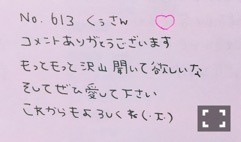 No. 613 くぅさん
コメントありがとうございます
もってもって沢山聞いて欲しいな
そしてぜひ愛して下さい
これからもよろしくね(·ェ·)